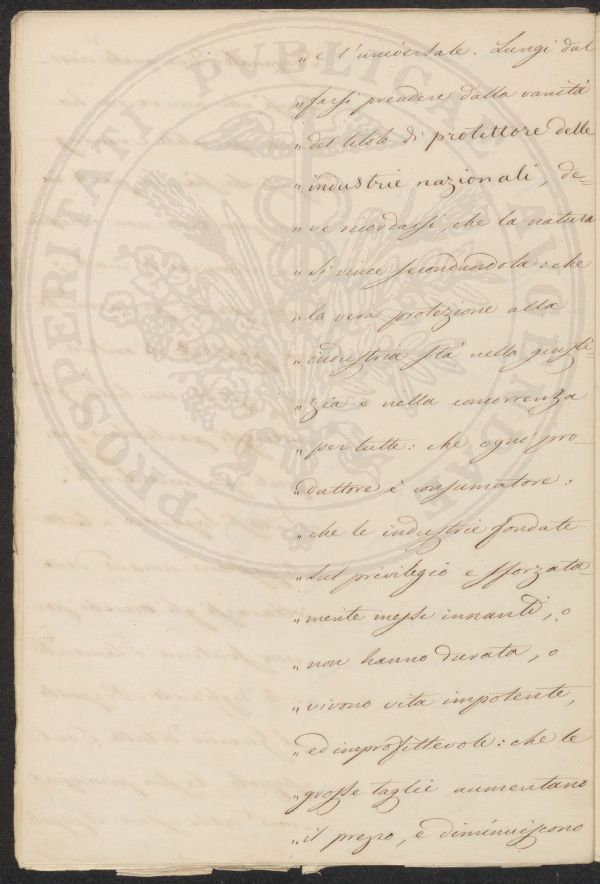 „ e l'universale. Lungi dal
„ farsi prendere dalla vanità
„ del titolo di protettore delle
„ industrie nazionali, de=
„ ve ricordarsi, che la natura
„ si vince secondandola: che
„ la vera protezione alla
„ industria stà nella giusti=
„ zia e nella concorrenza
„ per tutte: che ogni pro=
„ duttore è consumatore:
„ che le industrie fondate
„ sul privilegio e sforzata=
„ mente messe innanti, o
„ non hanno durata, o
„ vivono vita impotente,
„ ed improfittevole: che le
„ grosse taglie aumentano
„ il prezzo, e diminuiscono
PROSPERITATI PVBLICAE AVGENDAE